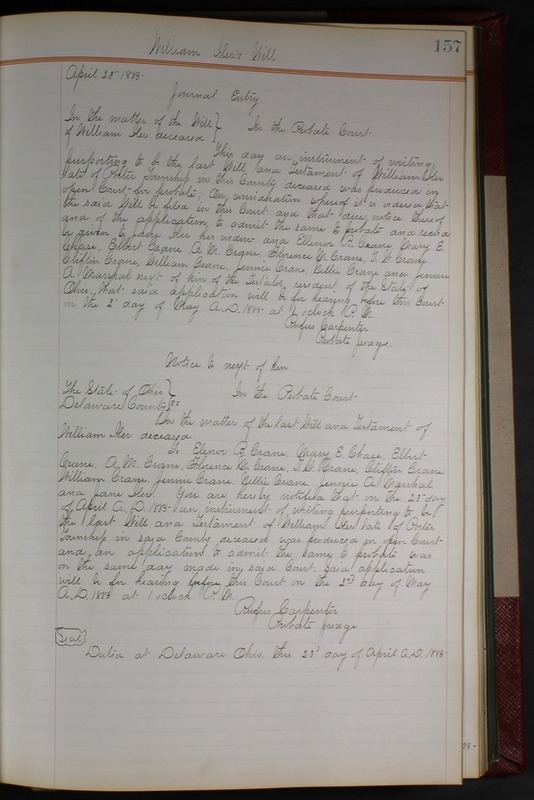 157
William Iler's Will
April 23d 1883.
Journal Entry
In the matter of the Will }
of William Iler deceased } In the Probate Court.
This day an instrument of writing,
purporting to be the last Will and Testament of William Iler
late of Porter Township in this County deceased was produced in
open Court for probate; On consideration whereof it is ordered that
the said Will be filed in this Court, and that due notice thereof
and of the application to admit the same to probate and record
be given to Jane Iler his widow and Ellenor R. Crane, Mary E.
Chase, Elbert Crane, A. M. Crane, Florence Crane, T. W. Crane
Cliffin Crane, William Crane, Jennie Crane, Cellie Crane and Jennie
A. Marshal next of kin of the Testator, resident of the State of
Ohio, that said application will be for hearing before this Court
on the 2d day of May A.D. 1883. at 1 oclock P. M.
Rufus Carpenter
Probate Judge.
Notice to next of kin
The State of Ohio }
Delaware County } ss In the Probate Court
In the matter of the last Will and Testament of
William Iler deceased
To Elenor R. Crane, Mary E. Chase, Elbert
Crane, A. M. Crane, Florence Crane, T. W. Crane, Cliffin Crane
William Crane, Jennie Crane, Cellie Crane, Jennie A. Marshal
and Jane Iler. You are hereby notified that on the 23d day
of April A.D. 1883 an instrument of writing purporting to be
the last Will and Testament of William Iler late of Porter
Township in said County deceased was produced in open Court
and an application to admit the same to probate was
on the same day made in said Court. Said application
will be for hearing before this Court on the 2nd day of May
A.D. 1883. at 1 oclock P. M.
Rufus Carpenter
Probate Judge
Seal
Dated at Delaware Ohio. this 23d day of April A.D. 1883.